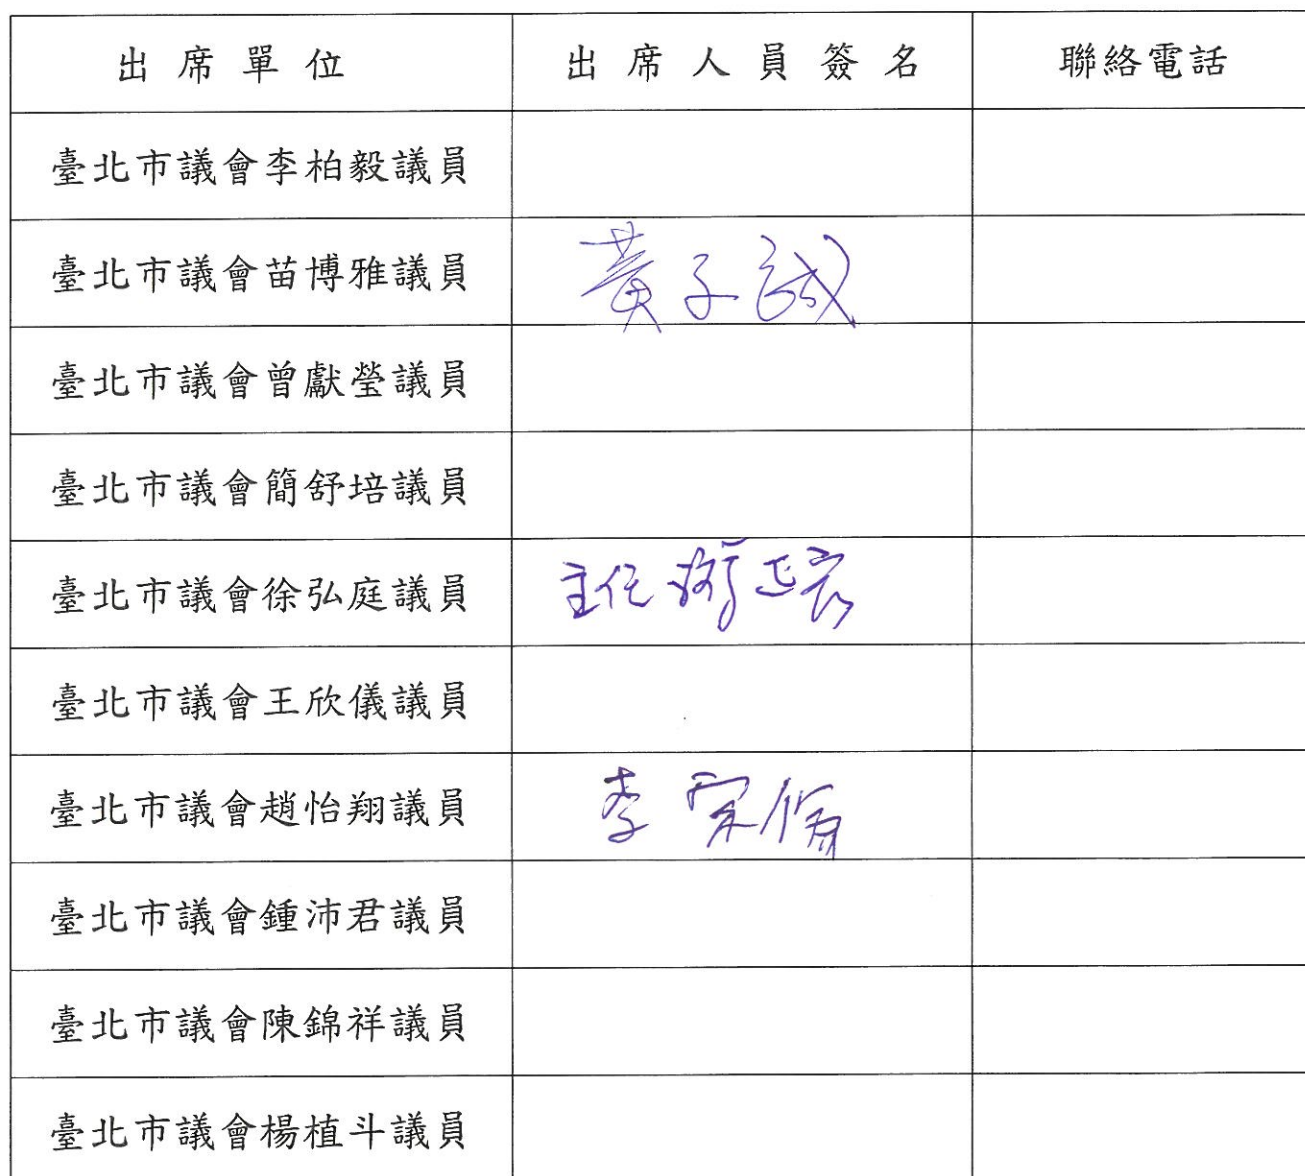 出席單位 出席人員簽名 聯絡電話
臺北市議會李柏毅議員
臺北市議會苗博雅議員 黃子誠
臺北市議會曾獻瑩議員
臺北市議會簡舒培議員
臺北市議會徐弘庭議員 主任
臺北市議會王欣儀議員
臺北市議會趙怡翔議員 李宗倫
臺北市議會鍾沛君議員
臺北市議會陳錦祥議員
臺北市議會楊植斗議員